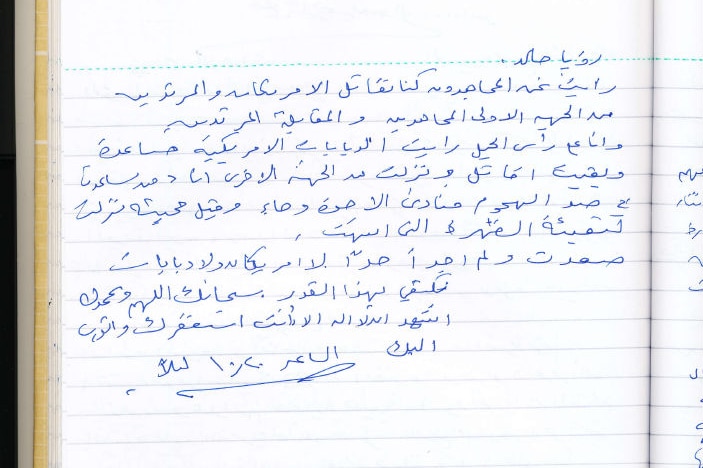 رؤيا خالد.
رأيت نحن المجاهدون كنا نقاتل الامريكان والمرتدين
من الجهة الاولى المجاهدين والمقابلة المرتدين
وانا على رأس الجبل رأيت الدبابات الامريكية صاعدة
وبقيت اقاتل ونزلت من الجهة الاخرى انا ومن ساعدنا
في صد الهجوم فنادى الاخوة وجاء وقبل مجيئه نزلت
لتعبئة الظهر التي انتهت،
صعدت ولم اجد أحداً لا امريكان ولا دبابات
نكتفي بهذا القدر. سبحانك اللهم وبحمدك
اشهد ان لا اله الا انت استغفرك واتوب
اليك الساعة ١٠،٢٠ ليلاً.